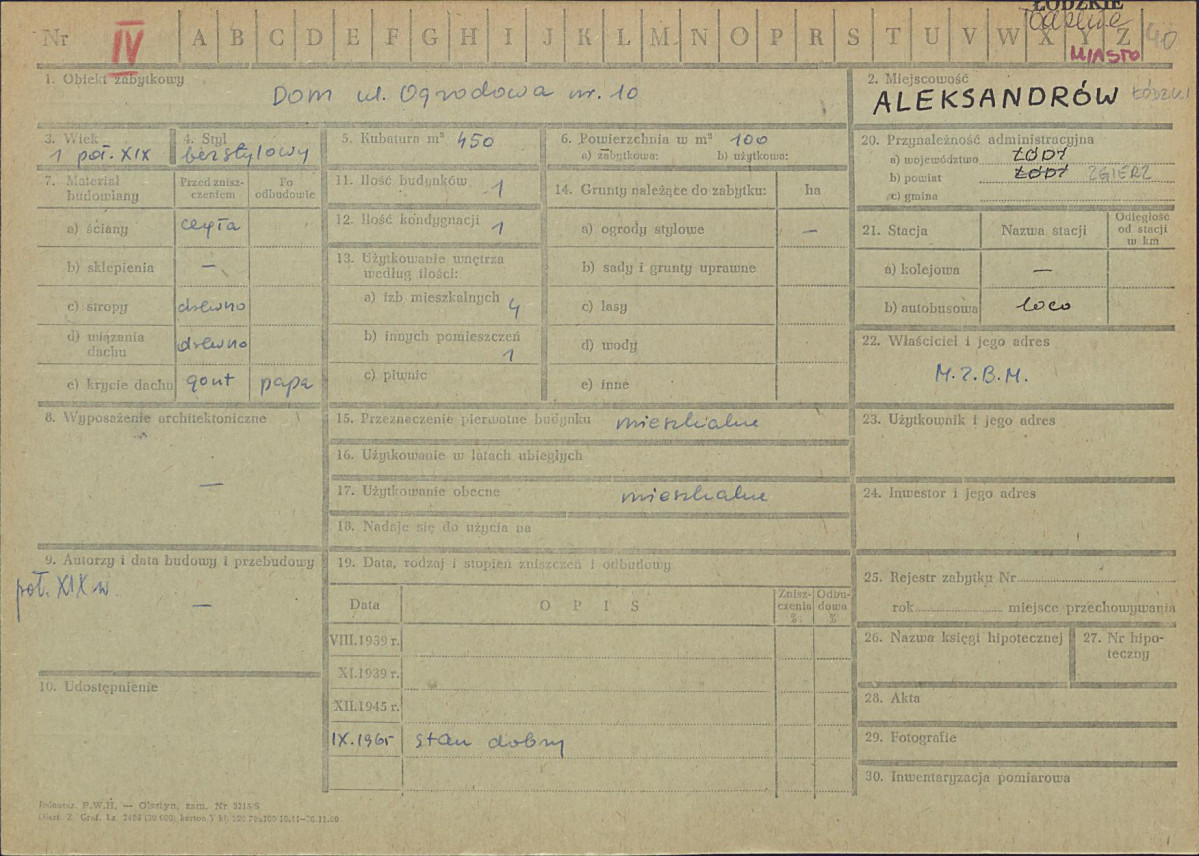 ŁÓDZKIE
Nr IV A B C D E F G H I J K L M N O P R S T U V W X Y Z 40
MIASTO
1. Obiekt zabytkowy
Dom ul. Ogrodowa nr. 10
2. Miejscowość
ALEKSANDRÓW ŁÓDZKI
3. Wiek
1 poł. XIX
4. Styl
bezstylowy
5. Kubatura m³ 450
6. Powierzchnia w m² 100
a) zabytkowa: b) użytkowa:
20. Przynależność administracyjna
a) województwo ŁÓDŹ
b) powiat ŁÓDŹ ZGIERZ
c) gmina
7. Materiał budowlany
Przed zniszczeniem
Po odbudowie
a) ściany cegła
b) sklepienia —
c) stropy drewno
d) wiązania dachu drewno
e) krycie dachu gont papa
11. Ilość budynków 1
12. Ilość kondygnacji 1
13. Użytkowanie wnętrza według ilości:
a) izb mieszkalnych 4
b) innych pomieszczeń 1
c) piwnic
14. Grunty należące do zabytku: ha
a) ogrody stylowe —
b) sady i grunty uprawne
c) lasy
d) wody
e) inne
21. Stacja Nazwa stacji Odległość od stacji w km
a) kolejowa —
b) autobusowa loco
22. Właściciel i jego adres
M.Z.B.M.
8. Wyposażenie architektoniczne
—
15. Przeznaczenie pierwotne budynku mieszkalne
16. Użytkowanie w latach ubiegłych
17. Użytkowanie obecne mieszkalne
18. Nadaje się do użycia na
23. Użytkownik i jego adres
24. Inwestor i jego adres
9. Autorzy i data budowy i przebudowy
poł. XIX w.
—
10. Udostępnienie
19. Data, rodzaj i stopień zniszczeń i odbudowy
Data OPIS Zniszczenia % Odbudowa %
VIII.1939 r.
XI.1939 r.
XII.1945 r.
IX.1965 stan dobry
25. Rejestr zabytku Nr
rok miejsce przechowywania
26. Nazwa księgi hipotecznej
27. Nr hipoteczny
28. Akta
29. Fotografie
30. Inwentaryzacja pomiarowa
P.W.H. — Olsztyn, zam. Nr 3215/S